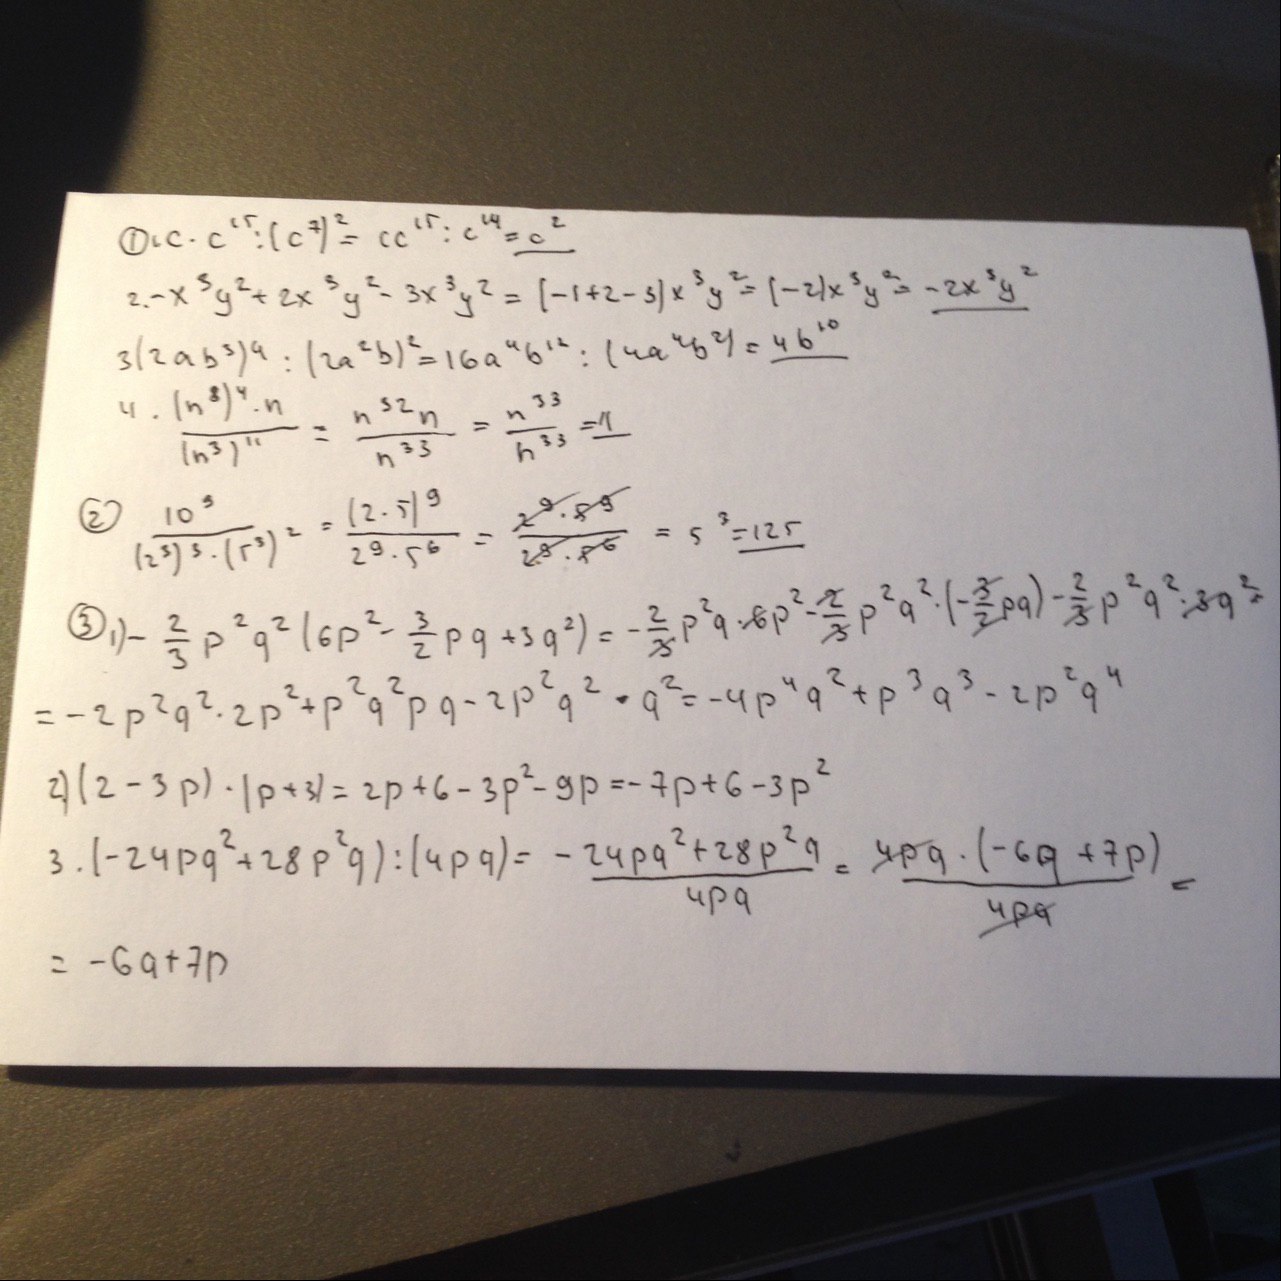 ① 1. c · c¹⁵ : (c⁷)² = cc¹⁵ : c¹⁴ = c²
2. -x³y² + 2x³y² - 3x³y² = (-1+2-3)x³y² = (-2)x³y² = -2x³y²
3 (2ab³)⁴ : (2a²b)² = 16a⁴b¹² : (4a⁴b²) = 4b¹⁰
4. (n⁸)⁴ · n / (n³)¹¹ = n³²n / n³³ = n³³ / n³³ = 1
② 10⁹ / (2³)³ · (5³)² = (2 · 5)⁹ / 2⁹ · 5⁶ = 2⁹ · 5⁹ / 2⁹ · 5⁶ = 5³ = 125
③ 1) - 2/3 p²q² (6p² - 3/2 pq + 3q²) = - 2/3 p²q · 6p² - 2/3 p²q² · (- 3/2 pq) - 2/3 p²q² · 3q² =
= -2p²q² · 2p² + p²q²pq - 2p²q² · q² = -4p⁴q² + p³q³ - 2p²q⁴
2) (2 - 3p) · (p+3) = 2p + 6 - 3p² - 9p = -7p + 6 - 3p²
3. (-24pq² + 28p²q) : (4pq) = - 24pq² + 28p²q / 4pq = 4pq · (-6q + 7p) / 4pq =
= -6q + 7p